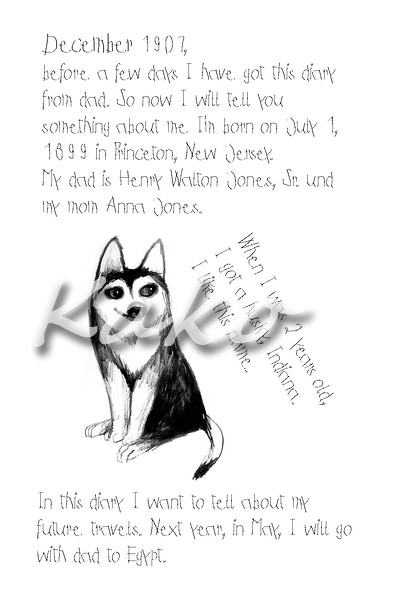 December 1907,
before a few days I have got this diary
from dad. So now I will tell you
something about me. I'm born on July 1,
1899 in Princeton, New Jersey.
My dad is Henry Walton Jones, Sr. und
my mom Anna Jones.
When I was 2 years old,
I got a husky, Indiana.
I like this name.
Kako
In this diary I want to tell about my
future travels. Next year, in May, I will go
with dad to Egypt.